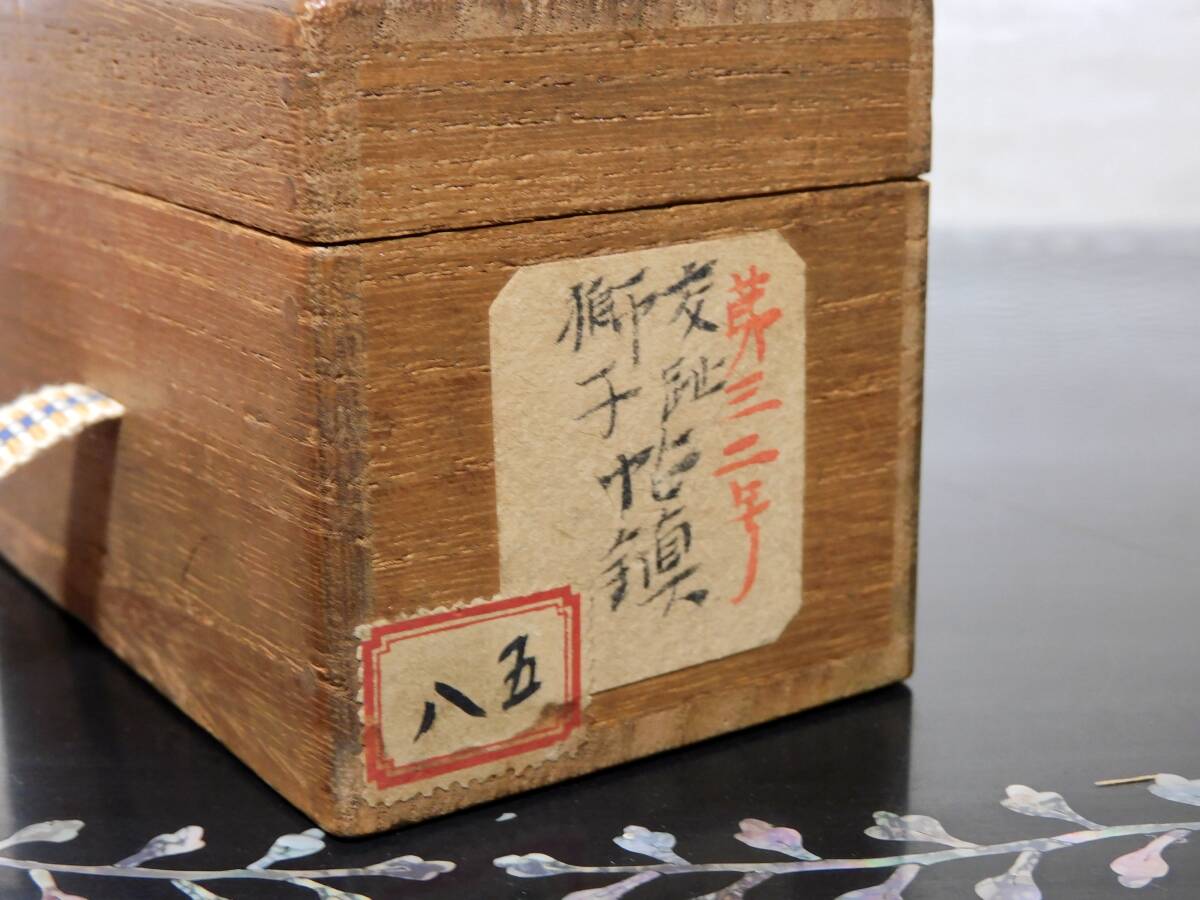 第三二号
交趾
獅子
帖鎮
五八